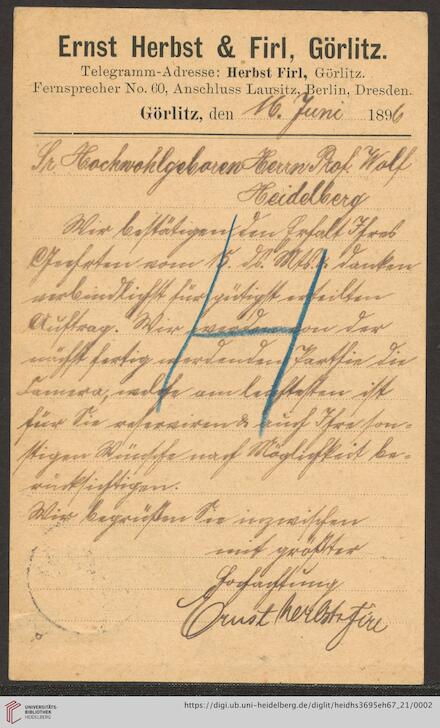 Ernst Herbst & Firl, Görlitz.
Telegramm-Adresse: Herbst Firl, Görlitz.
Fernsprecher No. 60, Anschluss Lausitz, Berlin, Dresden.
Görlitz, den 16. Juni 1896
Sr. Hochwohlgeboren Herrn Prof. Wolf
Heidelberg
Wir bestätigen den Erhalt Ihres
Geehrten vom ds. Mts. danken
verbindlichst für gütigst erteilten
Auftrag. Wir werden von der
nächst fertig werdenden Parthie die
Camera, welche am leichtesten ist
für Sie reserviren & auch Ihre son-
stigen Wünsche nach Möglichkeit be-
rücksichtigen.
Wir begrüßen Sie inzwischen
mit größter
Hochachtung
Ernst Herbst & Firl
H
UNIVERSITÄTS-
BIBLIOTHEK
HEIDELBERG
https://digi.ub.uni-heidelberg.de/diglit/heidhs3695eh67_21/0002